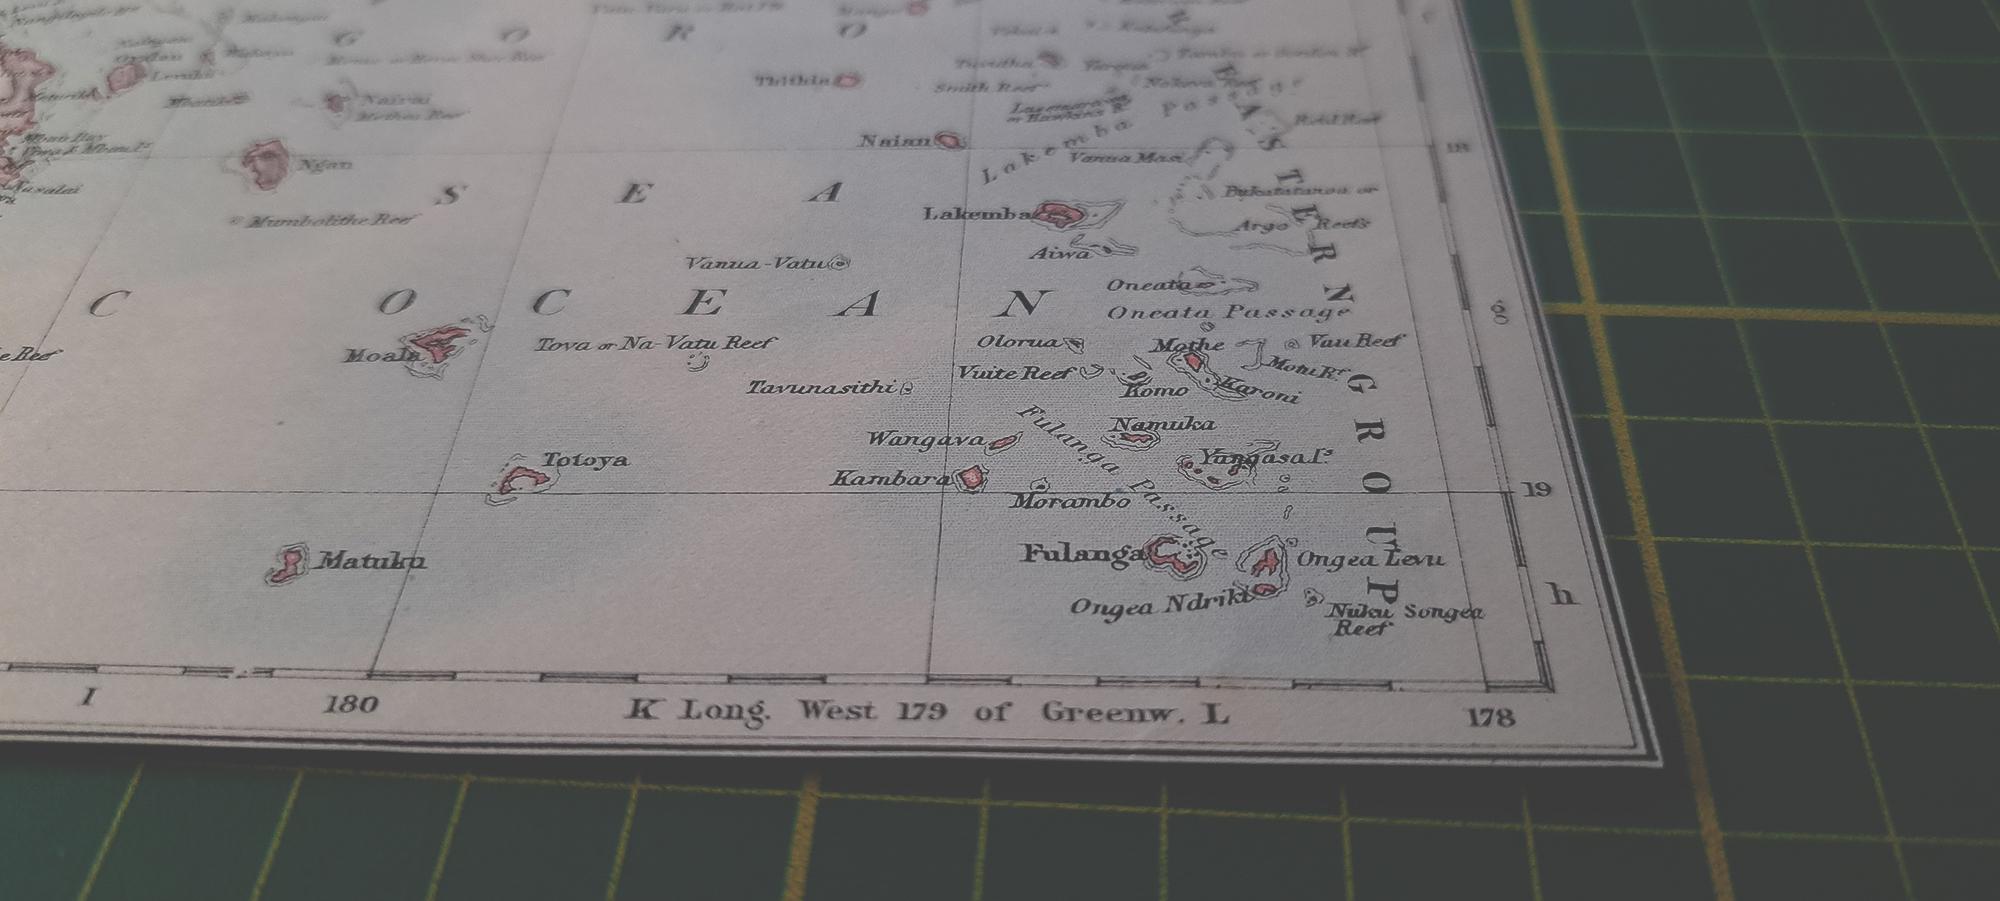 G O R O
Thithia
Smith Reef
Nairai
Ngau
Naiau
Lakemba Passage
Vanua Masi
18
S E A
Mumbolithe Reef
Lakemba
Argo Reefs
Aiwa
Vanua-Vatu
Oneata
Oneata Passage
EASTERN GROUP
C O C E A N
g
Moala
Tova or Na-Vatu Reef
Olorua
Mothe
Vau Reef
Motu Rf.
Vuite Reef
Komo
Karoni
Tavunasithi
Namuka
Wangava
Fulanga Passage
Yangasa Is.
Totoya
Kambara
Morambo
19
Matuku
Fulanga
Ongea Levu
Ongea Ndriki
Nuku Songea
Reef
h
I 180 K Long. West 179 of Greenw. L 178